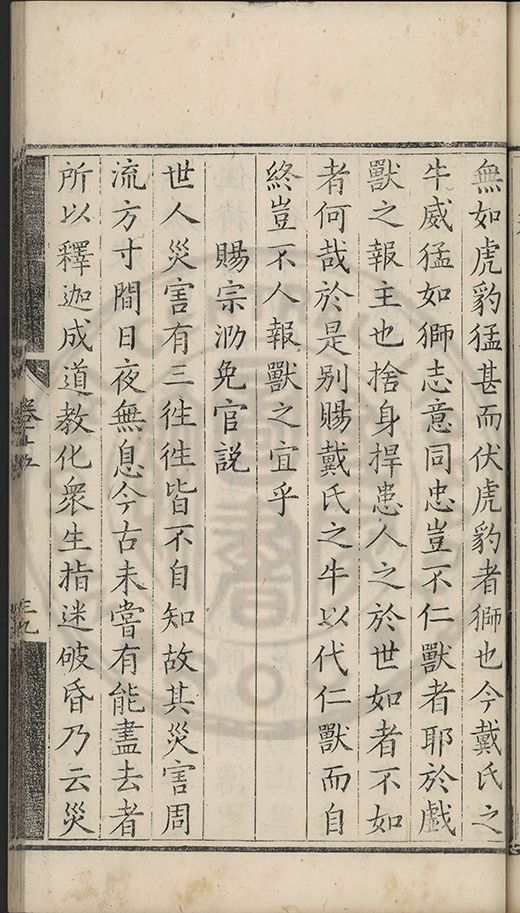 無如虎豹猛甚而伏虎豹者獅也今戴氏之
牛威猛如獅志意同忠豈不仁獸者耶於戲
獸之報主也捨身捍患人之於世如者不如
者何哉於是别賜戴氏之牛以代仁獸而自
終豈不人報獸之宜乎
賜宗泐免官説
世人災害有三徃徃皆不自知故其災害周
流方寸間日夜無息今古未嘗有能盡去者
所以釋迦成道教化衆生指迷破昏乃云災
卷十五
三九